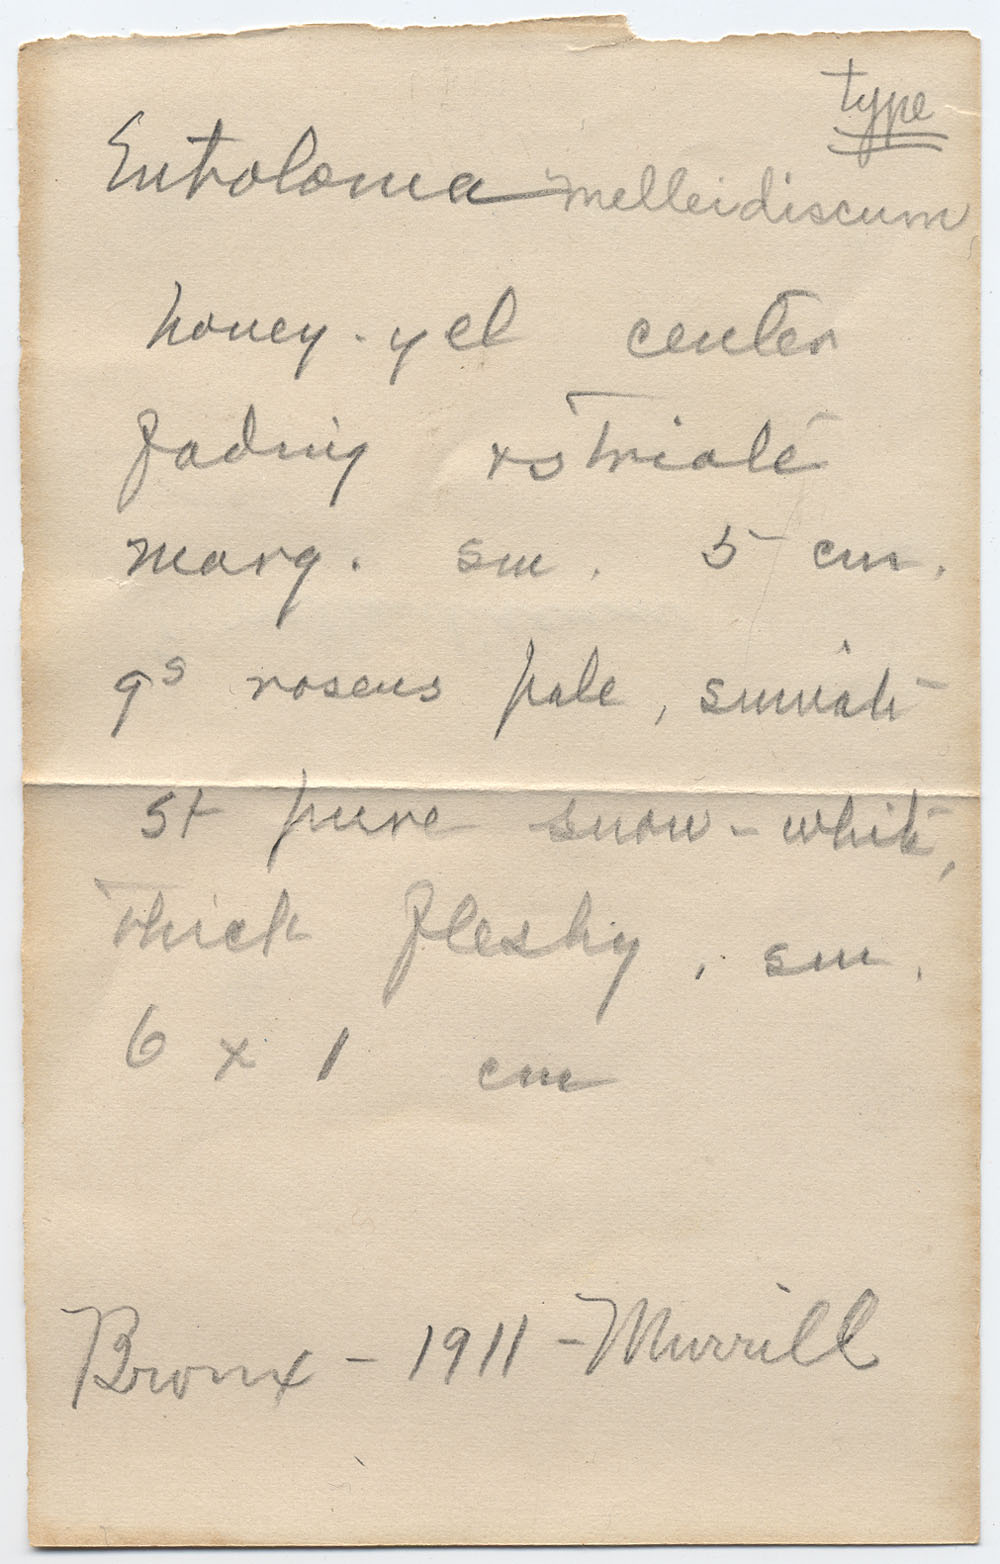 type
Entoloma melleidiscum
honey-yel center
fading + striate
marg. sm. 5 cm.
gs roseus pale, sinuate
st pure snow-white,
thick fleshy, sm.
6 x 1 cm
Bronx - 1911 - Murrill